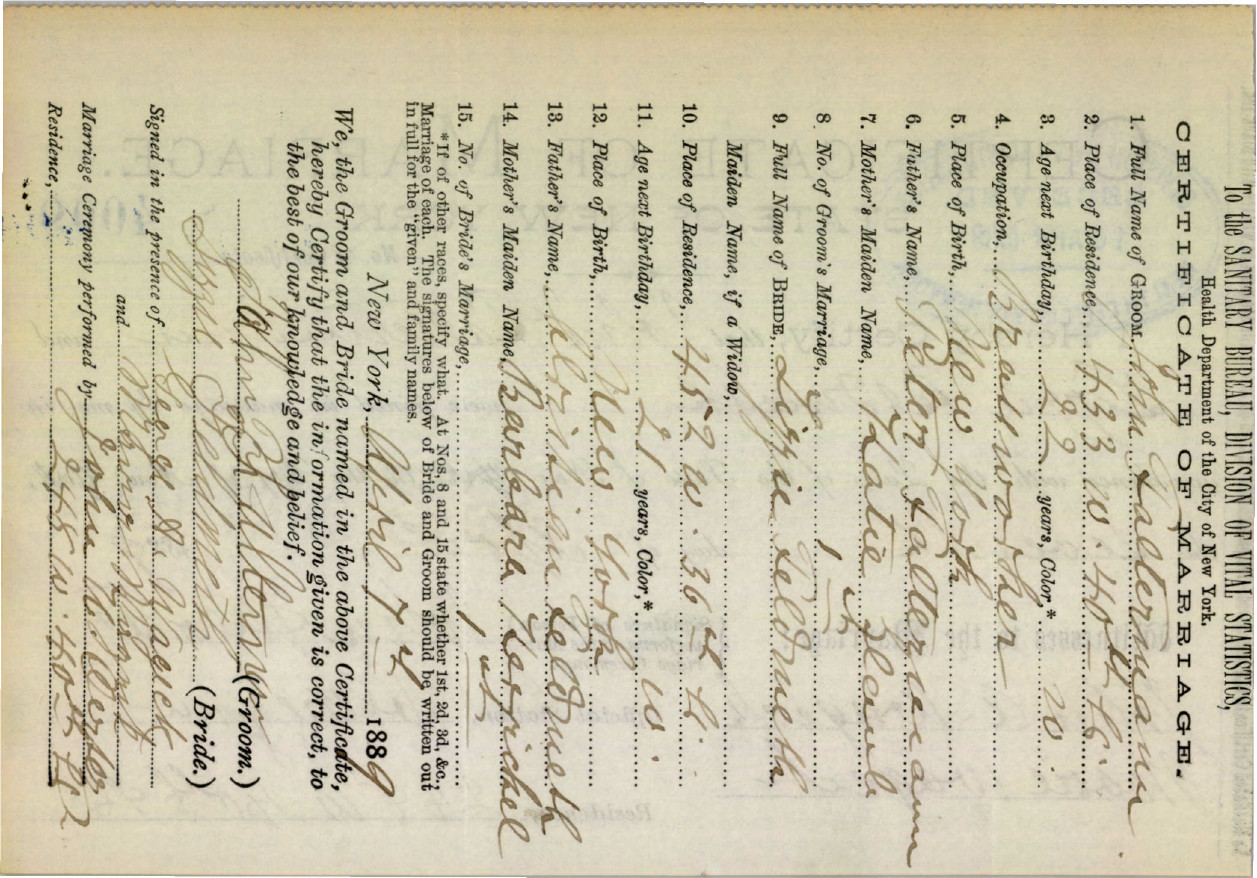 To the SANITARY BUREAU, DIVISION OF VITAL STATISTICS,
Health Department of the City of New York.
CERTIFICATE OF MARRIAGE.
1. Full Name of GROOM, John Faltermann
2. Place of Residence, 433 W 40th St.
3. Age next Birthday, 22 years, Color,* W.
4. Occupation,
5. Place of Birth, New York
6. Father's Name, Peter Faltermann
7. Mother's Maiden Name, Katie
8. No. of Groom's Marriage, 1st
9. Full Name of BRIDE, Lizzie Feldmeth
Maiden Name, if a Widow,
10. Place of Residence, 452 W. 36th St.
11. Age next Birthday, 21 years, Color,* W.
12. Place of Birth, New York
13. Father's Name, Christian Feldmeth
14. Mother's Maiden Name, Barbara
15. No. of Bride's Marriage, 1st
*If of other races, specify what. At Nos. 8 and 15 state whether 1st, 2d, 3d, &c.,
Marriage of each. The signatures below of Bride and Groom should be written out
in full for the "given" and family names.
New York, April 7th 1889
We, the Groom and Bride named in the above Certificate,
hereby Certify that the information given is correct, to
the best of our knowledge and belief.
John (Groom.)
Lizzie Feldmeth (Bride.)
Signed in the presence of George A
and
Marriage Ceremony performed by John
Residence, W. 40th St